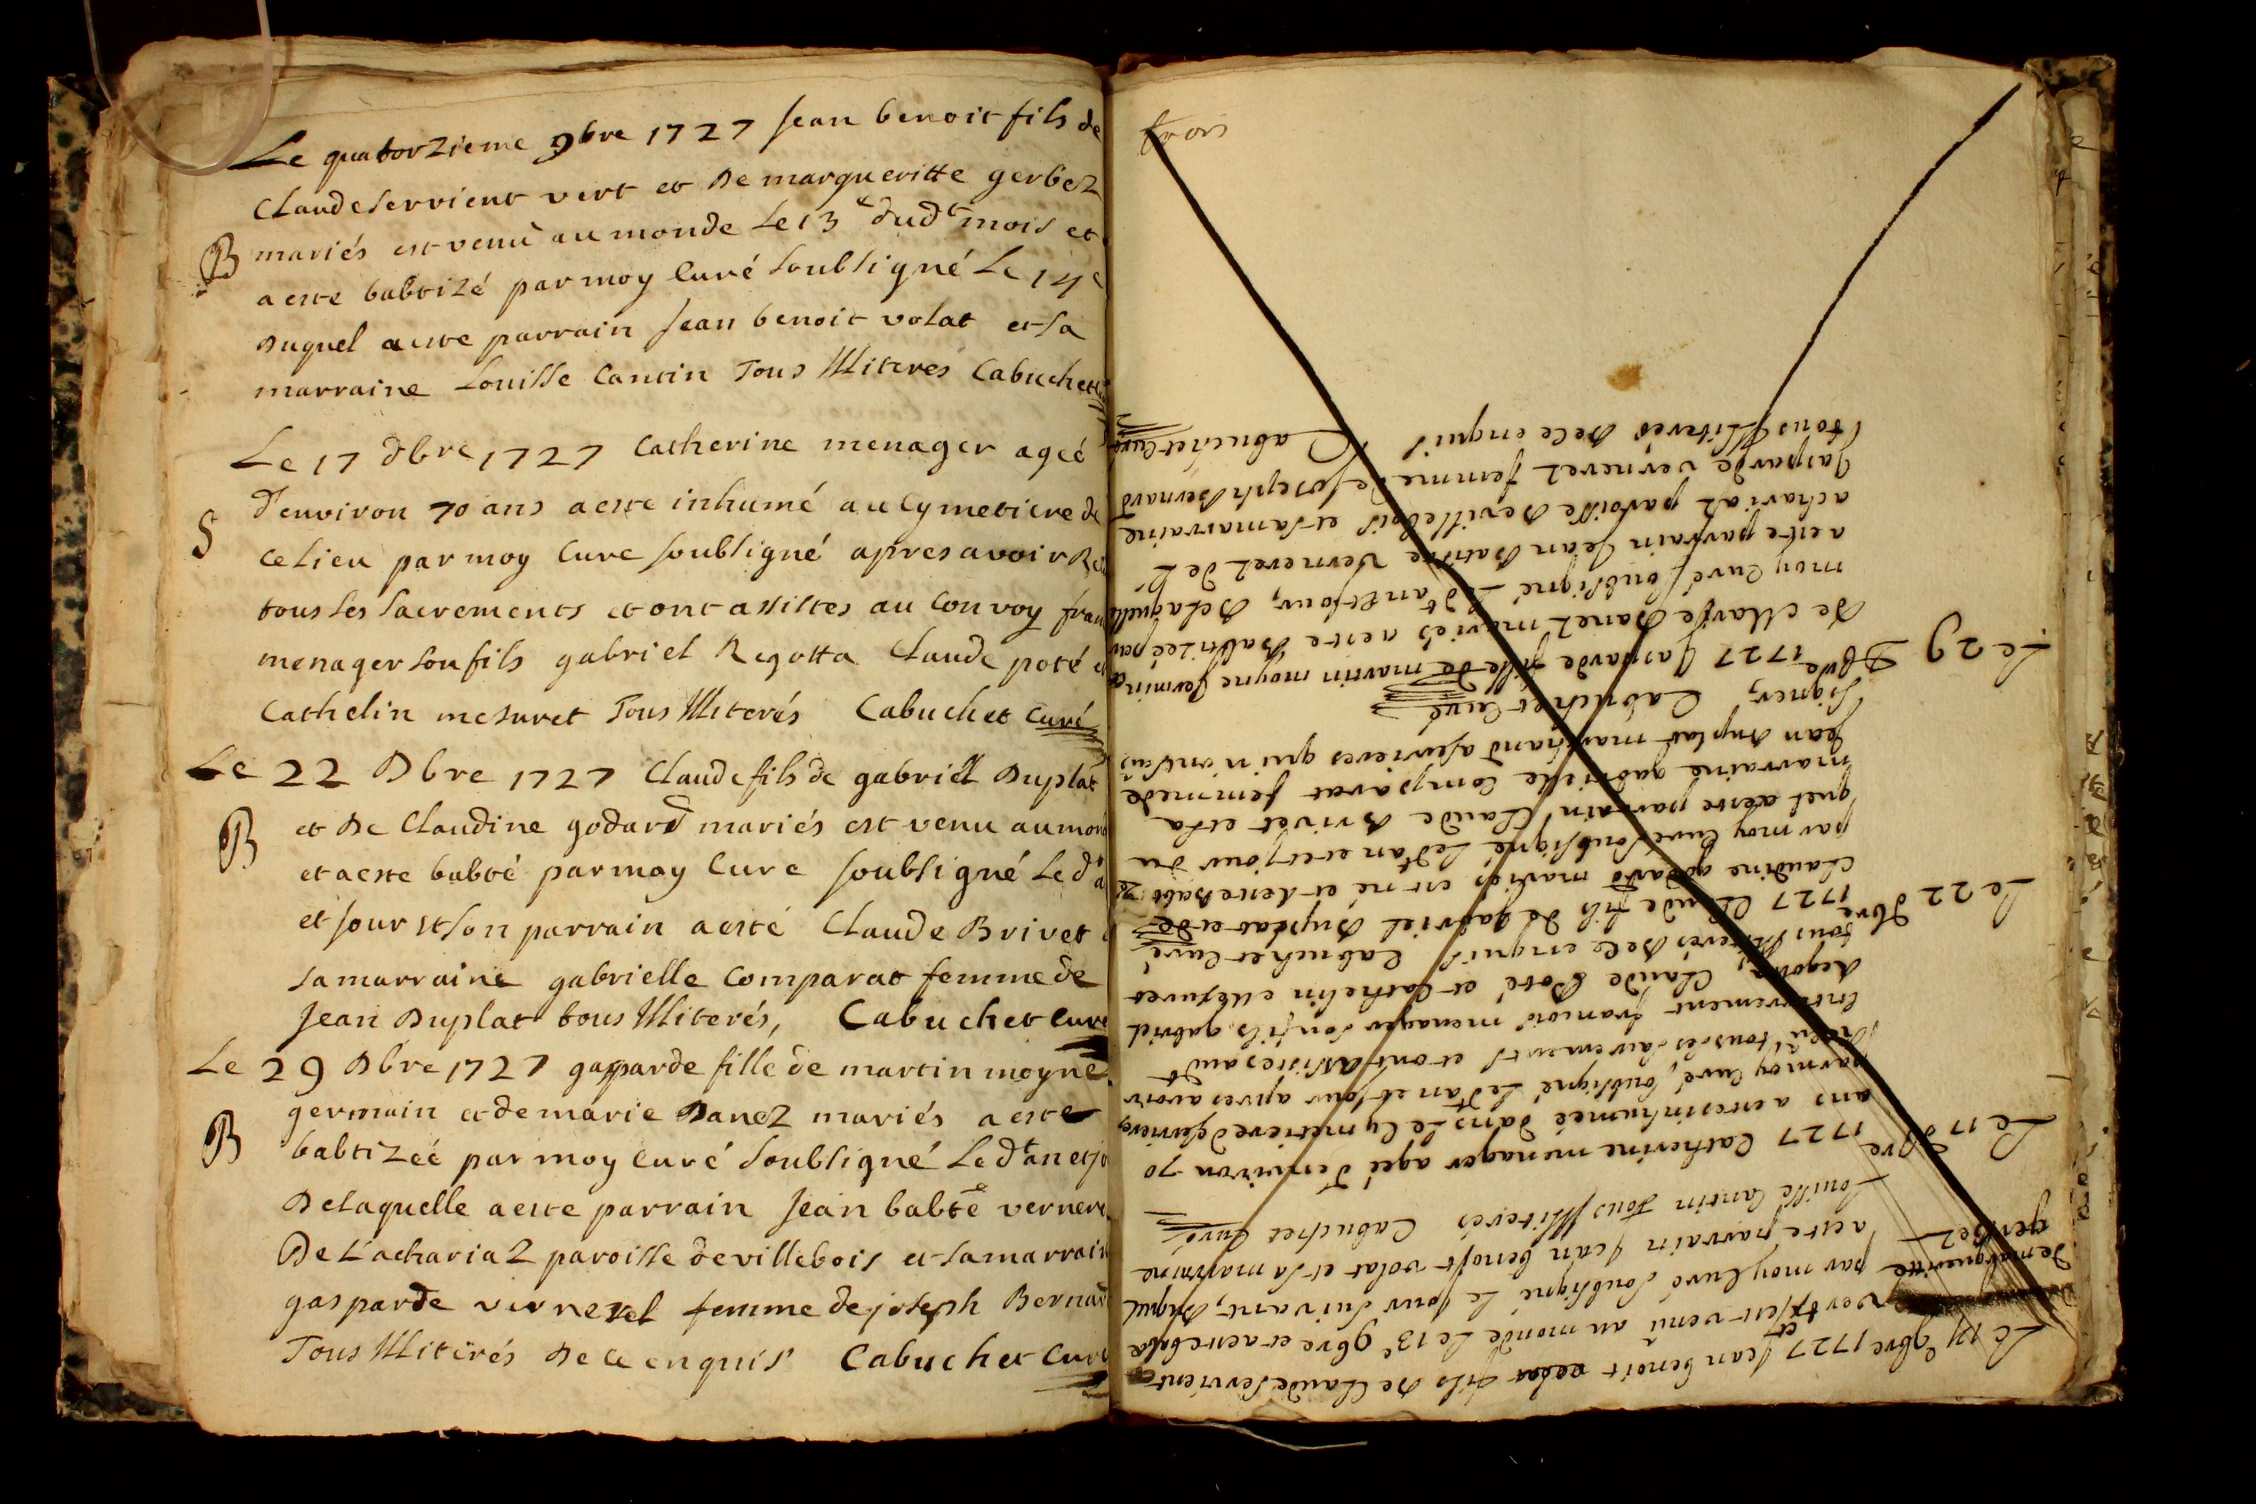 Le quatorzieme 9bre 1727 Jean benoit fils de
Claude Servient vert et De margueritte gerbez
B mariés est venu au monde Le 13e dudt mois et
a este babtizé par moy Curé Soubsigné Le 14e
Duquel a este parrain Jean benoit volat et Sa
marraine Louisse Cantin Tous Illiterés Cabuchet
Le 17 dbre 1727 Catherine menager ageé
S d'environ 70 ans a este inhumé au Cymetiere de
ce Lieu par moy Cure Soubsigné apres avoir
tous les Sacrements et ont assistes au Convoy
menager Son fils gabriel Regotta Claude poté
Cathelin mesuret Tous Illiterés Cabuchet Curé
Le 22 Dbre 1727 Claude fils de gabriel Duplat
B et De Claudine godard mariés est venu au
et a este babté par moy Cure Soubsigné Le dt
et Jour et Son parrain a esté Claude Brivet
Sa marraine gabrielle Comparat femme de
Jean Duplat tous Illiterés, Cabuchet Curé
Le 29 Dbre 1727 gasparde fille de martin moyne
germain et de marie Danez mariés a este
B babtizeé par moy Curé Soubsigné Le dt an et
De laquelle a este parrain Jean babte
De Lachariaz paroisse de villebois et Sa marraine
gasparde vernerel femme de joseph Bernard
Tous Illiterés De ce enquis Cabuchet Curé
Le 14e 9bre 1727 Jean benoit fils De Claude Servient
vert et
De margueritte
gerbez
est venu au monde Le 13e 9bre et a este
par moy Curé Soubsigné Le Jour Suivant, Duquel
a este parrain Jean benoist volat et Sa marraine
Louisse Cantin Tous Illiterés Cabuchet Curé
Le 17 dbre 1727 Catherine menager ageé d'environ 70
ans a este inhumeé dans Le Cymetiere
par moy Curé Soubsigné Le dt an et Jour apres avoir
tous les Sacrements et ont Assistes audt
Enterrement francois menager Son fils, gabriel
Regotta, Claude Poté et Cathelin
tous Illiterés De ce enquis Cabuchet Curé
Le 22 dbre 1727 Claude fils de gabriel Duplat et De
Claudine godard mariés est né et a este
par moy Curé Soubsigné Le dt an et Jour Du
quel a este parrain Claude Brivet et Sa
marraine gabrielle Comparat femme de
Jean Duplat marchand qui n'ont
Signer, Cabuchet Curé
Le 29 Dbre 1727 Gasparde fille de martin moyne
De Marie Danez mariés a este Babtizeé par
moy Curé Soubsigné Le dt an et Jour, De Laquelle
a este parrain Jean Batiste Vernerel de
achariaz paroisse De villebois et Sa marraine
Gasparde vernerel femme De Joseph Bernard
tous Illiterés De ce enquis Cabuchet Curé